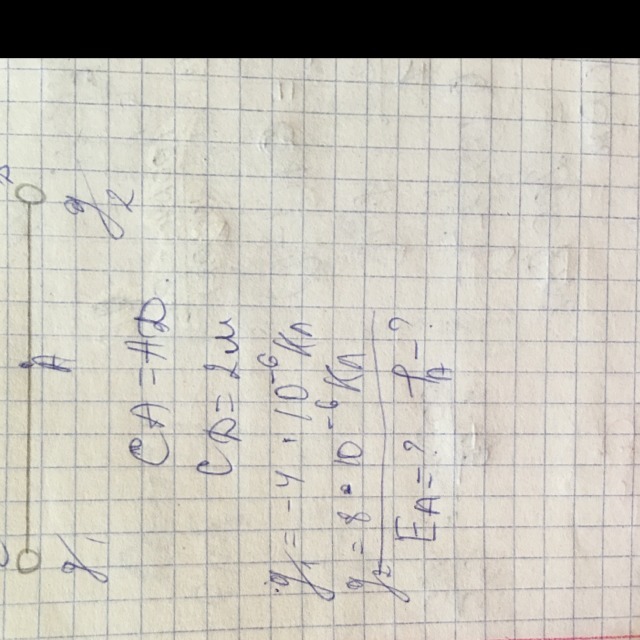 A
q₁ q₂
CA = AD.
CD = 2м
q₁ = -4 · 10⁻⁶ Кл
q₂ = 8 · 10⁻⁶ Кл
E_A = ? φ_A - ?